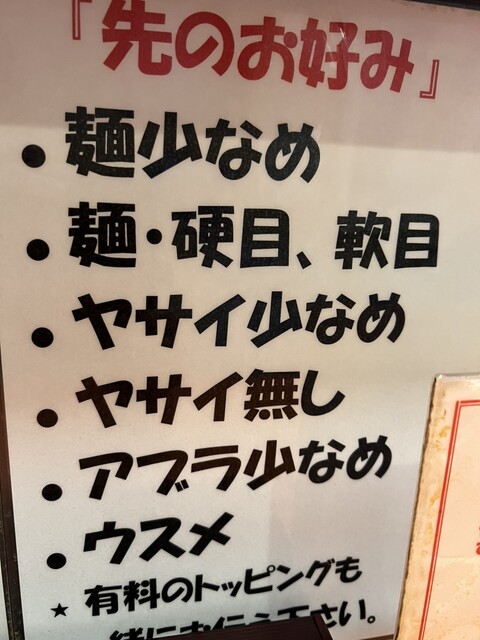 『先のお好み』
・麺少なめ
・麺・硬目、軟目
・ヤサイ少なめ
・ヤサイ無し
・アブラ少なめ
・ウスメ
★有料のトッピングも
緒にお伝え下さい。